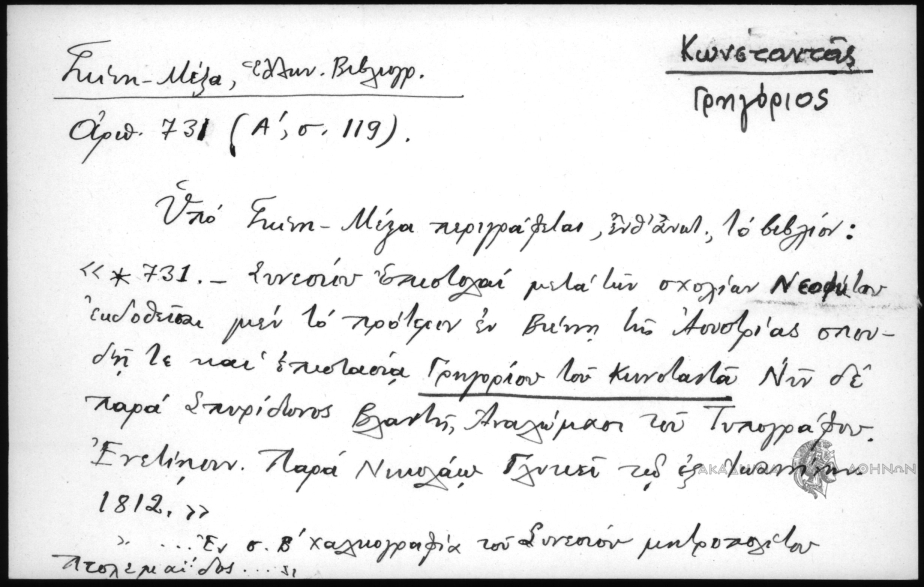 Γκίνη - Μέξα, Ἑλλην. Βιβλιογρ.
Κωνσταντᾶς
Γρηγόριος
Ἀριθ. 731 (Α', σ. 119).
Ὑπό Γκίνη - Μέξα περιγράφεται, ἔνθ' ἀνωτ., τό βιβλίον:
«*731. - Συνεσίου Ἐπιστολαί μετά τῶν σχολίων Νεοφύτου
ἐκδοθεῖσαι μέν τό πρότερον ἐν Βιέννῃ τῆς Ἀουστρίας σπου-
δῇ τε καί ἐπιστασίᾳ Γρηγορίου τοῦ Κωνσταντᾶ Νῦν δέ
παρά Σπυρίδωνος Βλαντῆ, Ἀναλώμασι τοῦ Τυπογράφου.
Ἐνετίῃσιν. Παρά Νικολάῳ Γλυκεῖ τῷ ἐξ Ἰωαννίνων
1812.»
» ... Ἐν σ. Β' χαλκογραφία τοῦ Συνεσίου μητροπολίτου
Πτολεμαΐδος ... »
ΑΚΑΔΗΜΙΑ ΑΘΗΝΩΝ